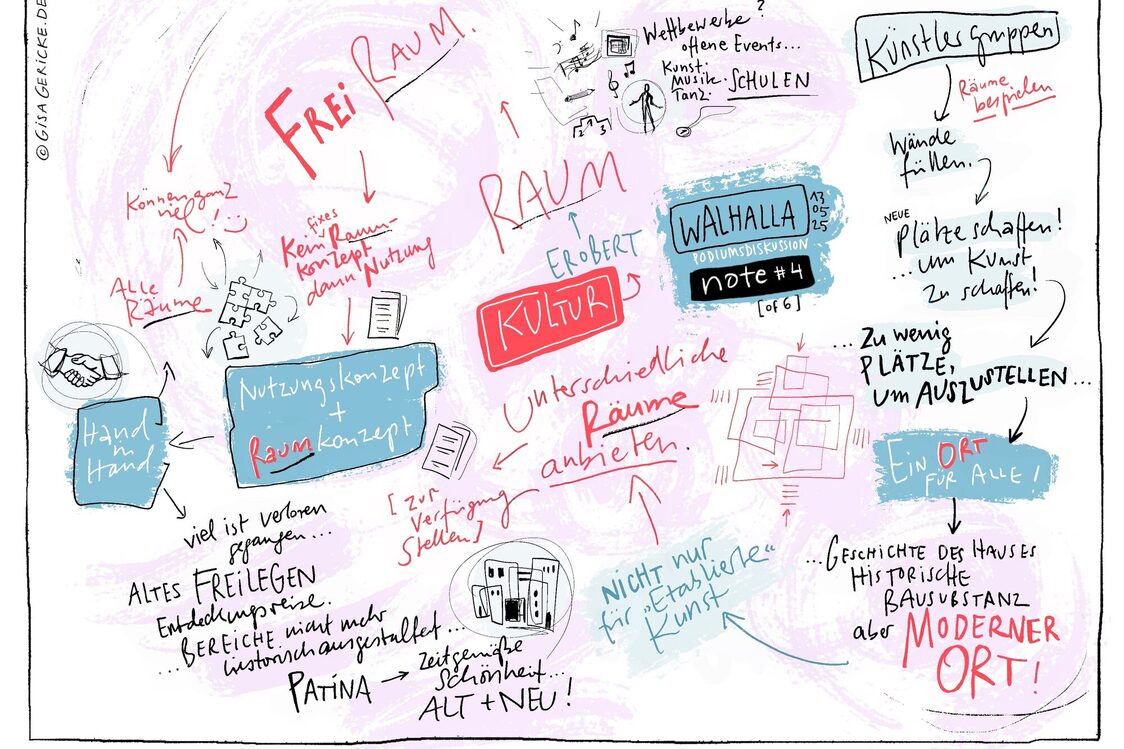 © GISA GERICKE.DE
FREI RAUM.
Wettbewerbe?
offene Events...
Kunst.
Musik.
Tanz. SCHULEN
1
2 3
Künstlergruppen
Räume
bespielen
Wände
füllen.
NEUE
Plätze schaffen!
... um Kunst
zu schaffen!
... Zu wenig
PLÄTZE,
um AUSZUSTELLEN...
EIN ORT
FÜR ALLE!
...GESCHICHTE DES HAUSES
HISTORISCHE
BAUSUBSTANZ
aber MODERNER
ORT!
NICHT NUR
für „Etablierte“
Kunst
WALHALLA
13
05
25
PODIUMSDISKUSSION
note #4
[of 6]
RAUM
EROBERT
KULTUR
Unterschiedliche
Räume
anbieten.
[Zur
Verfügung
Stellen]
Können ganz
viel!
ALLE
RÄUME
fixes
Kein Raum-
konzept
dann Nutzung
Nutzungskonzept
+
Raumkonzept
Hand
in
Hand
viel ist verloren
gegangen...
ALTES FREILEGEN
Entdeckungsreise.
...BEREICHE nicht mehr
historisch ausgestaltet...
PATINA → Zeitgemäße
Schönheit...
ALT + NEU!